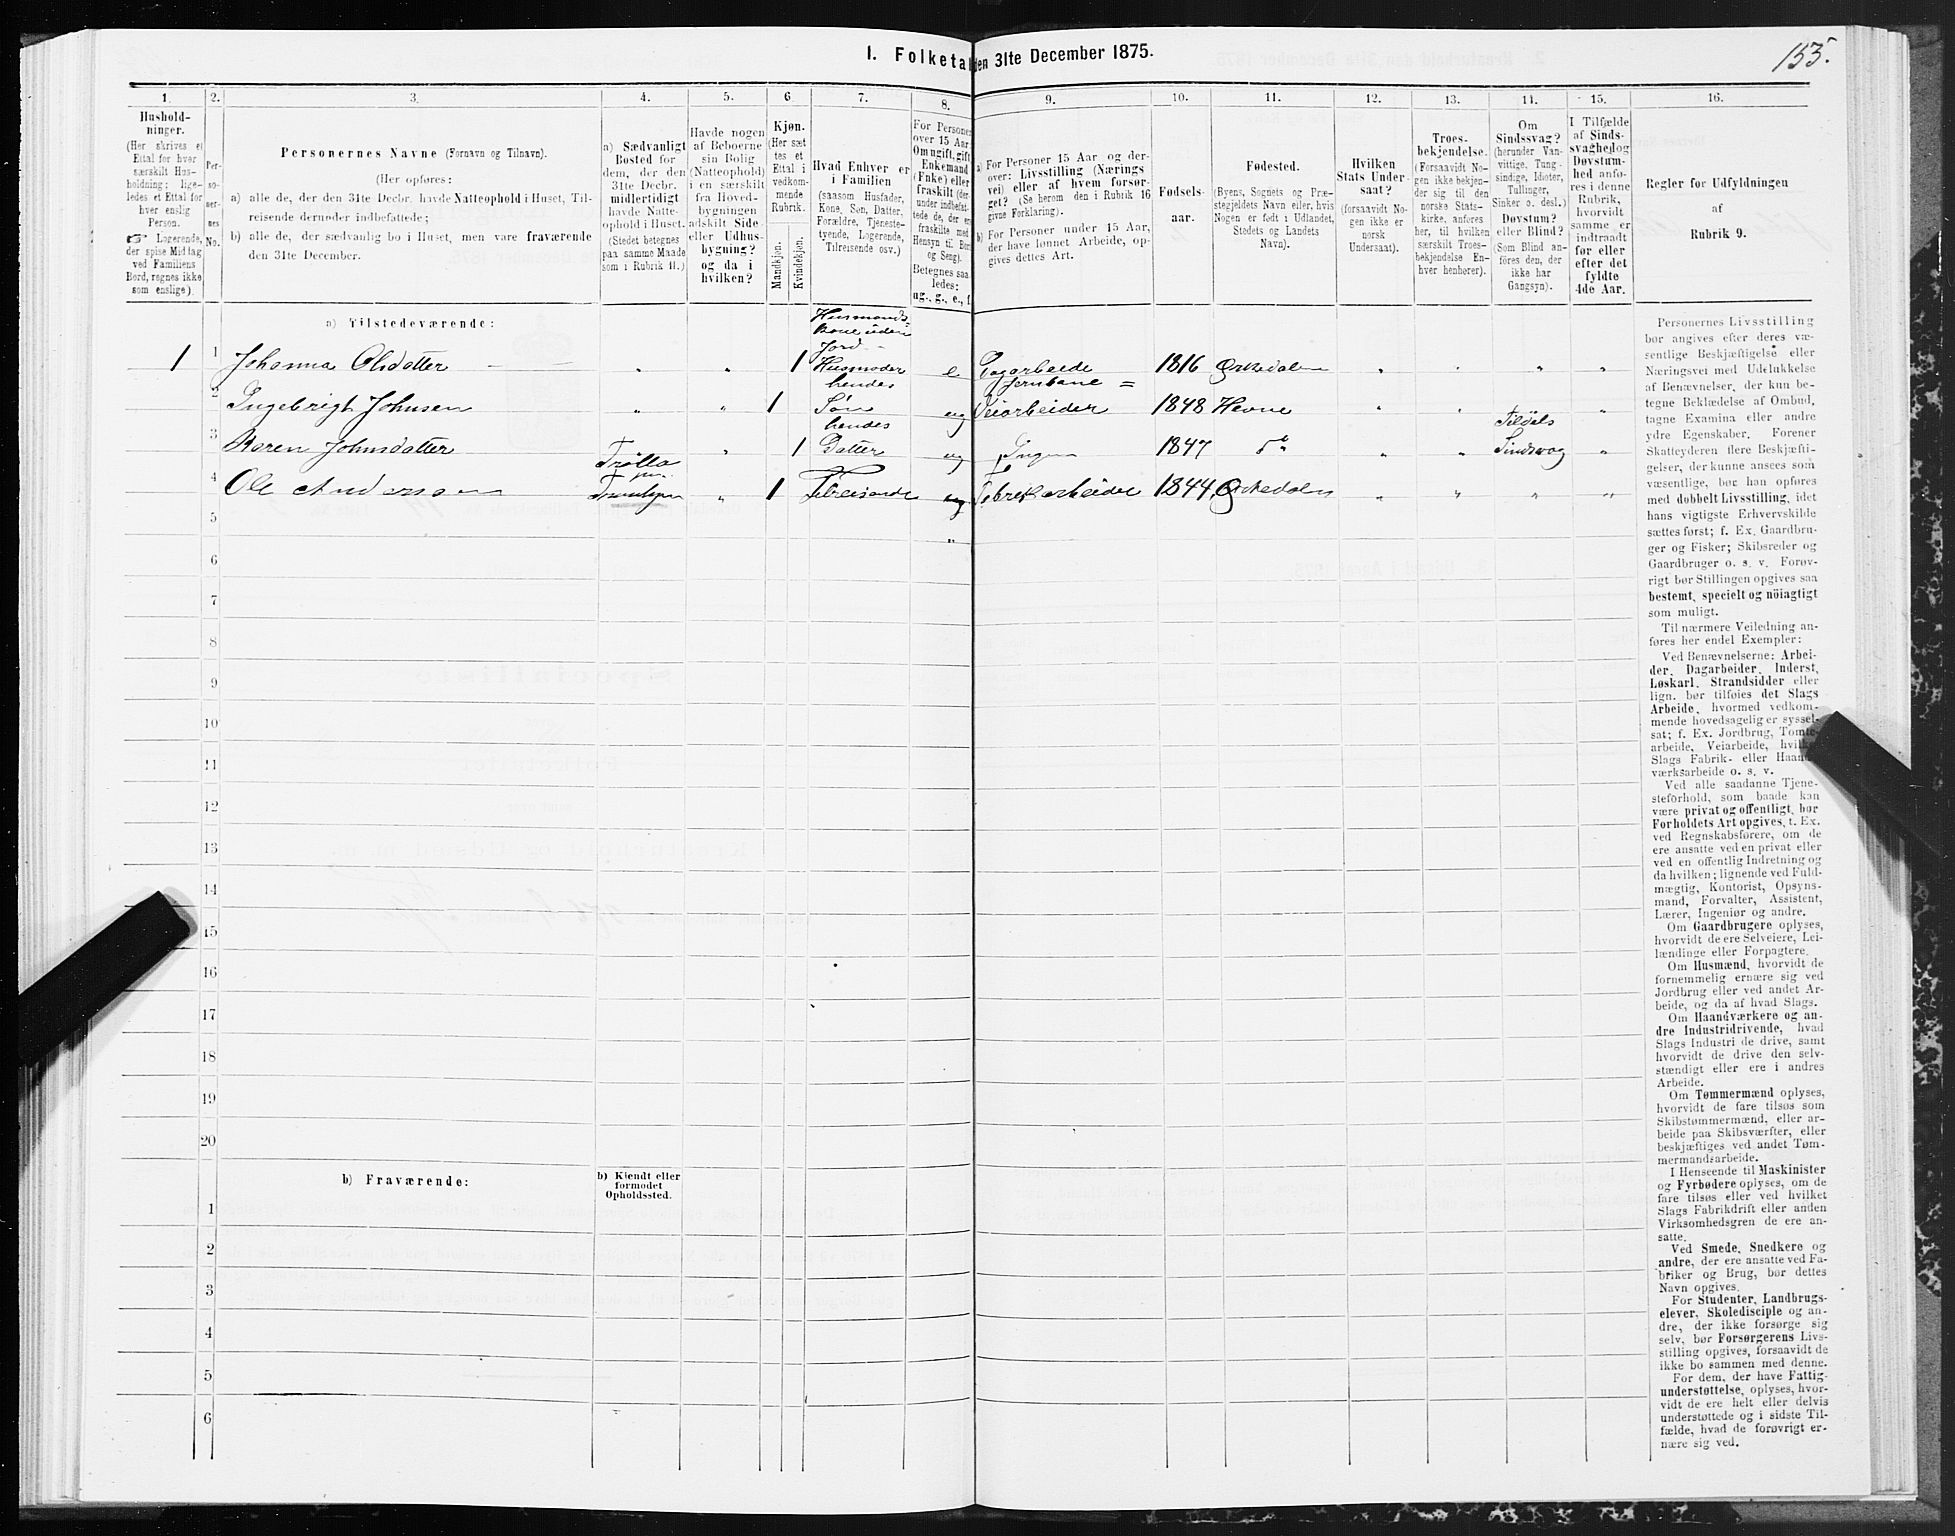 I. Folketal den 31te December 1875.
155.
1.
2.
3.
4.
5.
6
7.
8.
9.
10.
11.
12.
13.
14.
15.
16.
Hushold-
ninger.
(Her skrives et
Ettal for hver
særskilt Hus-
holdning; lige-
ledes et Ettal for
hver enslig
Person.
☞ Logerende,
der spise Middag
ved Familiens
Bord, regnes ikke
som enslige).
Per-
so-
ner-
nes
No.
Personernes Navne (Fornavn og Tilnavn).
(Her opføres:
a) alle de, der den 31te Decbr. havde Natteophold i Huset, Til-
reisende derunder indbefattede;
b) alle de, der sædvanlig bo i Huset, men vare fraværende
den 31te December.
a) Sædvanligt
Bosted for
dem, der den
31te Decbr.
midlertidigt
havde Natte-
ophold i Huset.
(Stedet betegnes
paa samme Maade
som i Rubrik 11.)
Havde nogen
af Beboerne
sin Bolig
(Natteophold)
i en særskilt
fra Hoved-
bygningen
adskilt Side-
eller Udhus-
bygning?
og da i
hvilken?
Kjøn.
(Her sæt
tes et
Ettal i
vedkom-
mende
Rubrik.
Mandkjøn.
Kvindekjøn.
Hvad Enhver er
i Familien
(saasom Husfader,
Kone, Søn, Datter,
Forældre, Tjeneste-
tyende, Logerende,
Tilreisende osv.)
For Personer
over 15 Aar
Om ugift, gift
Enkemand
(Enke) eller
fraskilt (der-
under indbefat-
tede de, der ere
fraskilte med
Hensyn til Bord
og Seng).
Betegnes saa-
ledes:
ug., g., e., f.
a) For Personer 15 Aar og der-
over: Livsstilling (Nærings
vei) eller af hvem forsør-
get? (Se herom den i Rubrik 16
givne Forklaring).
b) For Personer under 15 Aar,
der have lønnet Arbeide, op-
gives dettes Art.
Fødsels-
aar.
Fødested.
(Byens, Sognets og Præ-
stegjeldets Navn eller, hvis
Nogen er født i Udlandet,
Stedets og Landets
Navn).
Hvilken
Stats Under-
saat?
(forsaavidt No-
gen ikke er
norsk
Undersaat).
Troes-
bekjendelse.
(Forsaavidt No-
gen ikke bekjen-
der sig til den
norske Stats-
kirke, anføres
her, til hvilken
særskilt Troes-
bekjendelse En-
hver henhører).
Om
Sindssvag?
(herunder Van-
vittige, Tung-
sindige, Idioter,
Tullinger,
Sinker o. desl.)
Døvstum?
eller Blind?
(Som Blind an-
føres den, der
ikke har
Gangsyn).
I Tilfælde
af Sinds-
svaghed og
Døvstum-
hed anfø-
res i denne
Rubrik,
hvorvidt
samme er
indtraadt
før eller
efter det
fyldte
4de Aar.
Regler for Udfyldningen
af
Rubrik 9.
a) Tilstedeværende:
1 1 Johanna Olsdatter " " 1 Husmands-
Kone uden
Jord -
Husmoder e Dagarbeide 1816 Orkedalen " " " "
2 Ingebrigt Johnsen " " 1 hendes
Søn ug Jernbane =
Veiarbeider 1848 Hevne " " "
3 Karen Johnsdatter " 1 hendes
Datter ug Ingen 1847 do " " Tildels
Sindsvag "
4 Ole Andersen Trolla
Trondhjem " 1 Tilreisende ug Fabrikarbeider 1844 Orkedalen " " " "
5
"
6
7
8
9
10
11
12
13
14
15
16
17
18
19
20
b) Fraværende:
b) Kjendt eller
formodet
Opholdssted.
1
2
3
4
5
6
Personernes Livsstilling
bør angives efter deres væ-
sentlige Beskjæftigelse eller
Næringsvei med Udelukkelse
af Benævnelser, der kun be-
tegne Beklædelse af Ombud,
tagne Examina eller andre
ydre Egenskaber. Forener
Skatteyderen flere Beskjæfti-
gelser, der kunne ansees som
væsentlige, bør han opgives
med dobbelt Livsstilling, idet
hans vigtigste Erhvervskilde
sættes først; f. Ex. Gaardbru-
ger og Fisker; Skibsreder og
Gaardbruger o. s. v. Forøv-
rigt bør Stillingen opgives saa
bestemt, specielt og nöiagtigt
som muligt.
Til nærmere Veiledning an-
føres her endel Exempler:
Ved Benævnelserne: Arbei-
der, Dagarbeider, Inderst,
Løskarl, Strandsidder eller
lign. bør tilføies det Slags
Arbeide, hvormed vedkom-
mende hovedsagelig er syssel-
sat; f. Ex. Jordbrug, Tomte-
arbeide, Veiarbeide, hvilket
Slags Fabrik- eller Haand-
værksarbeide o. s. v.
Ved alle saadanne Tjene-
steforhold, som baade kan
være privat og offentligt, bør
Forholdets Art opgives, t. Ex.
ved Regnskabsførere, om de
ere ansatte ved en privat eller
ved en offentlig Indretning og
da hvilken; lignende ved Fuld-
mægtig, Kontorist, Opsyns-
mand, Forvalter, Assistent,
Lærer, Ingeniør og andre.
Om Gaardbrugere oplyses,
hvorvidt de ere Selveiere, Lei-
lændinge eller Forpagtere.
Om Husmænd, hvorvidt de
fornemmelig ernære sig ved
Jordbrug eller ved andet Ar-
beide, og da af hvad Slags.
Om Haandværkere og an-
dre Industridrivende, hvad
Slags Industri de drive, samt
hvorvidt de drive den selv-
stændigt eller ere i andres
Arbeide.
Om Tømmermænd oplyses,
hvorvidt de fare tilsøs som
Skibstømmermænd, eller ar-
beide paa Skibsværfter, eller
beskjæftiges ved andet Tøm-
mermandsarbeide.
I Henseende til Maskinister
og Fyrbødere oplyses, om de
fare tilsøs eller ved hvilket
Slags Fabrikdrift eller anden
Virksomhedsgren de ere an-
satte.
Ved Smede, Snedkere og
andre, der ere ansatte ved Fa-
briker og Brug, bør dettes
Navn opgives.
For Studenter, Landbrugs-
elever, Skoledisciple og an-
dre, der ikke forsørge sig
selv, bør Forsørgerens Livs-
stilling opgives, forsaavidt de
ikke bo sammen med denne.
For dem, der have Fattig-
understøttelse, oplyses, hvor-
vidt de ere helt eller delvis
understøttede og i sidste Til-
fælde, hvad de forøvrigt er-
nære sig ved.